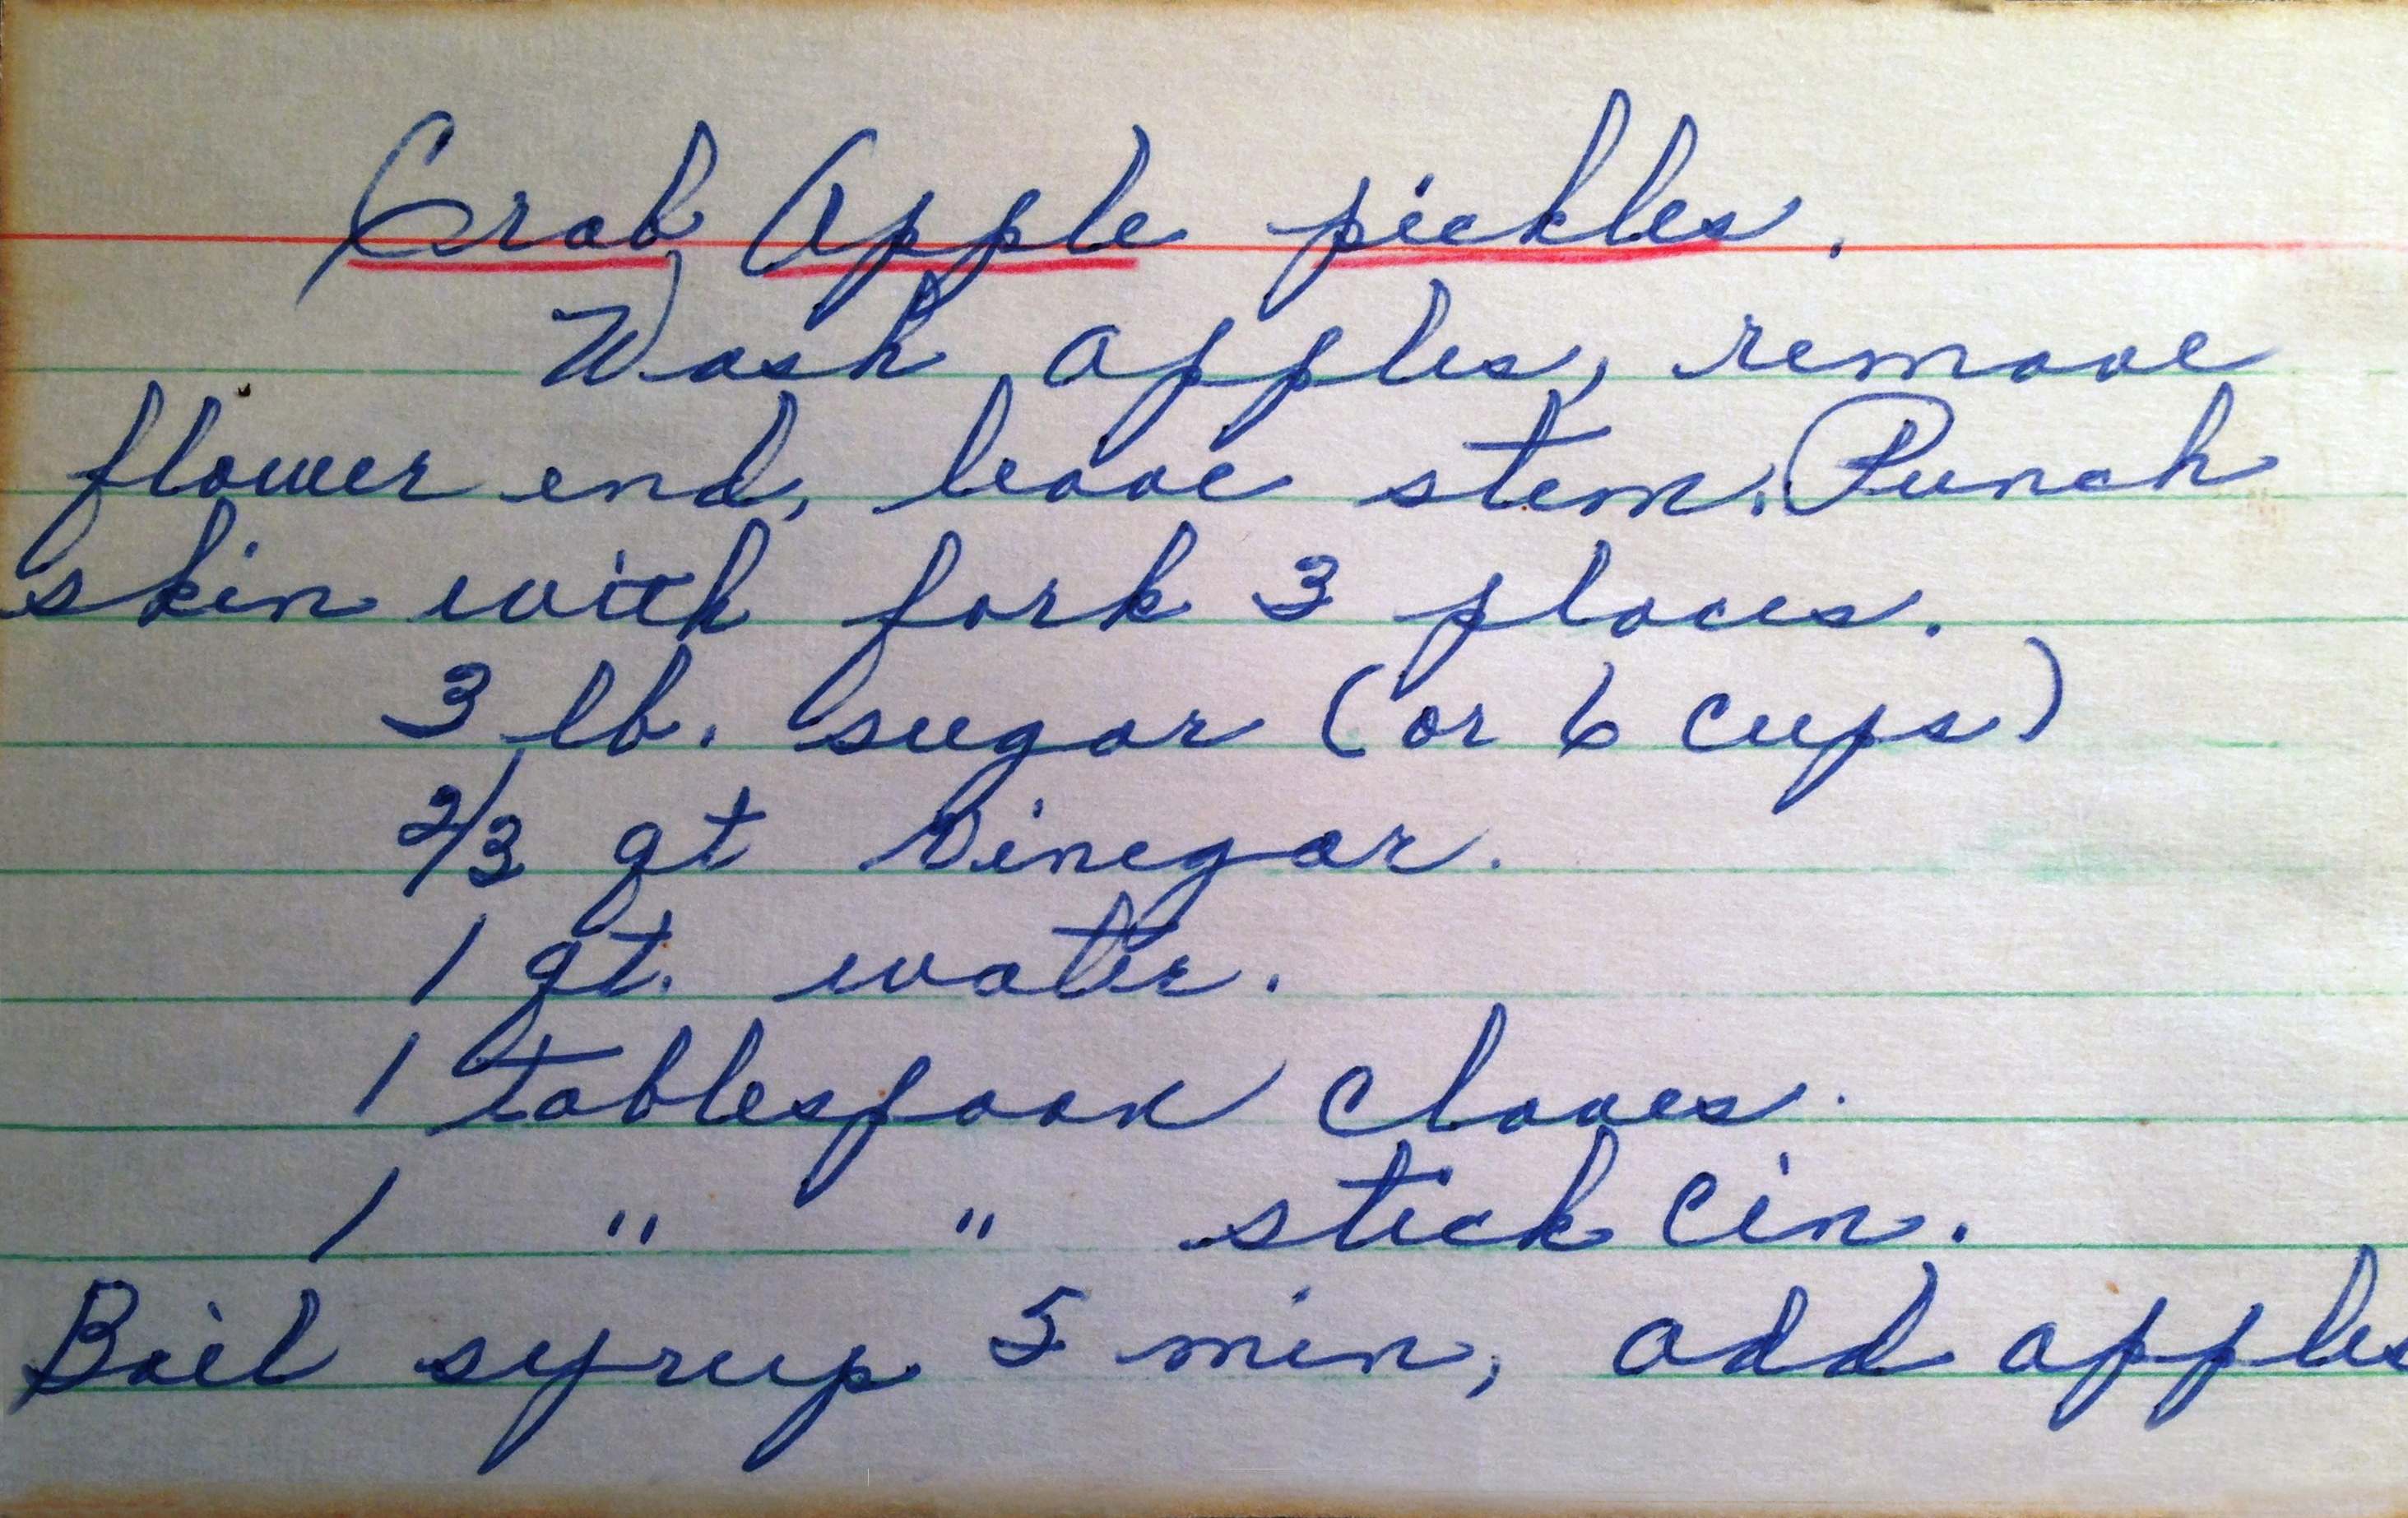 Crab Apple pickles.
Wash apples, remove
flower end, leave stem. Punch
skin with fork 3 places.
3 lb. sugar (or 6 cups)
2/3 qt Vinegar.
1 qt. water.
1 tablespoon Cloves.
1 " " stick Cin.
Boil syrup 5 min, add apples